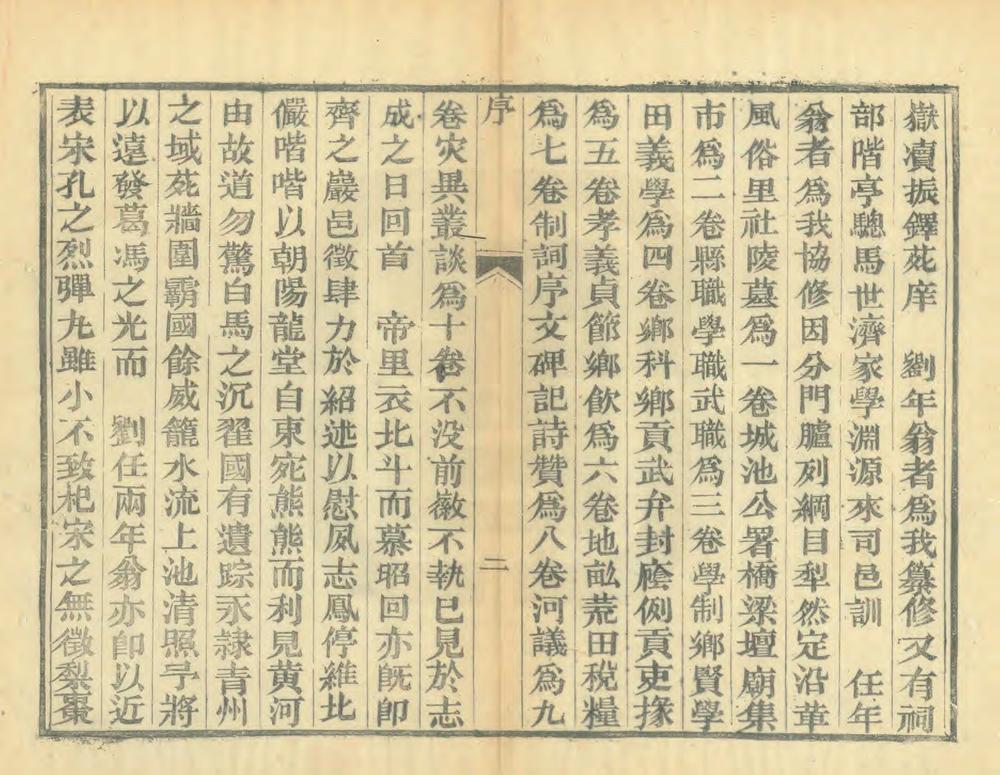 嶽瀆振鐸茲庠　劉年翁者爲我纂修又有祠
部階亭驄馬世濟家學淵源來司邑訓　任年
翁者爲我協修因分門臚列綱目犁然定沿革
風俗里社陵墓爲一卷城池公署橋梁壇廟集
市爲二卷縣職學職武職爲三卷學制鄉賢學
田義學爲四卷鄉科鄉貢武弁封廕例貢吏掾
爲五卷孝義貞節鄉飲爲六卷地畝荒田稅糧
爲七卷制詞序文碑記詩贊爲八卷河議爲九
序
二
卷灾異叢談爲十卷不没前徽不執已見於志
成之日回首　帝里衣北斗而慕昭回亦既卽
齊之巖邑徵肆力於紹述以慰夙志鳳停維北
儼喈喈以朝陽龍堂自東宛熊熊而利見黄河
由故道勿驚白馬之沉翟國有遺踪永隷青州
之域茲牆圍霸國餘威籠水流上池清照弓將
以遠發葛馮之光而　劉任兩年翁亦卽以近
表宋孔之烈彈丸雖小不致杞宋之無徵梨棗